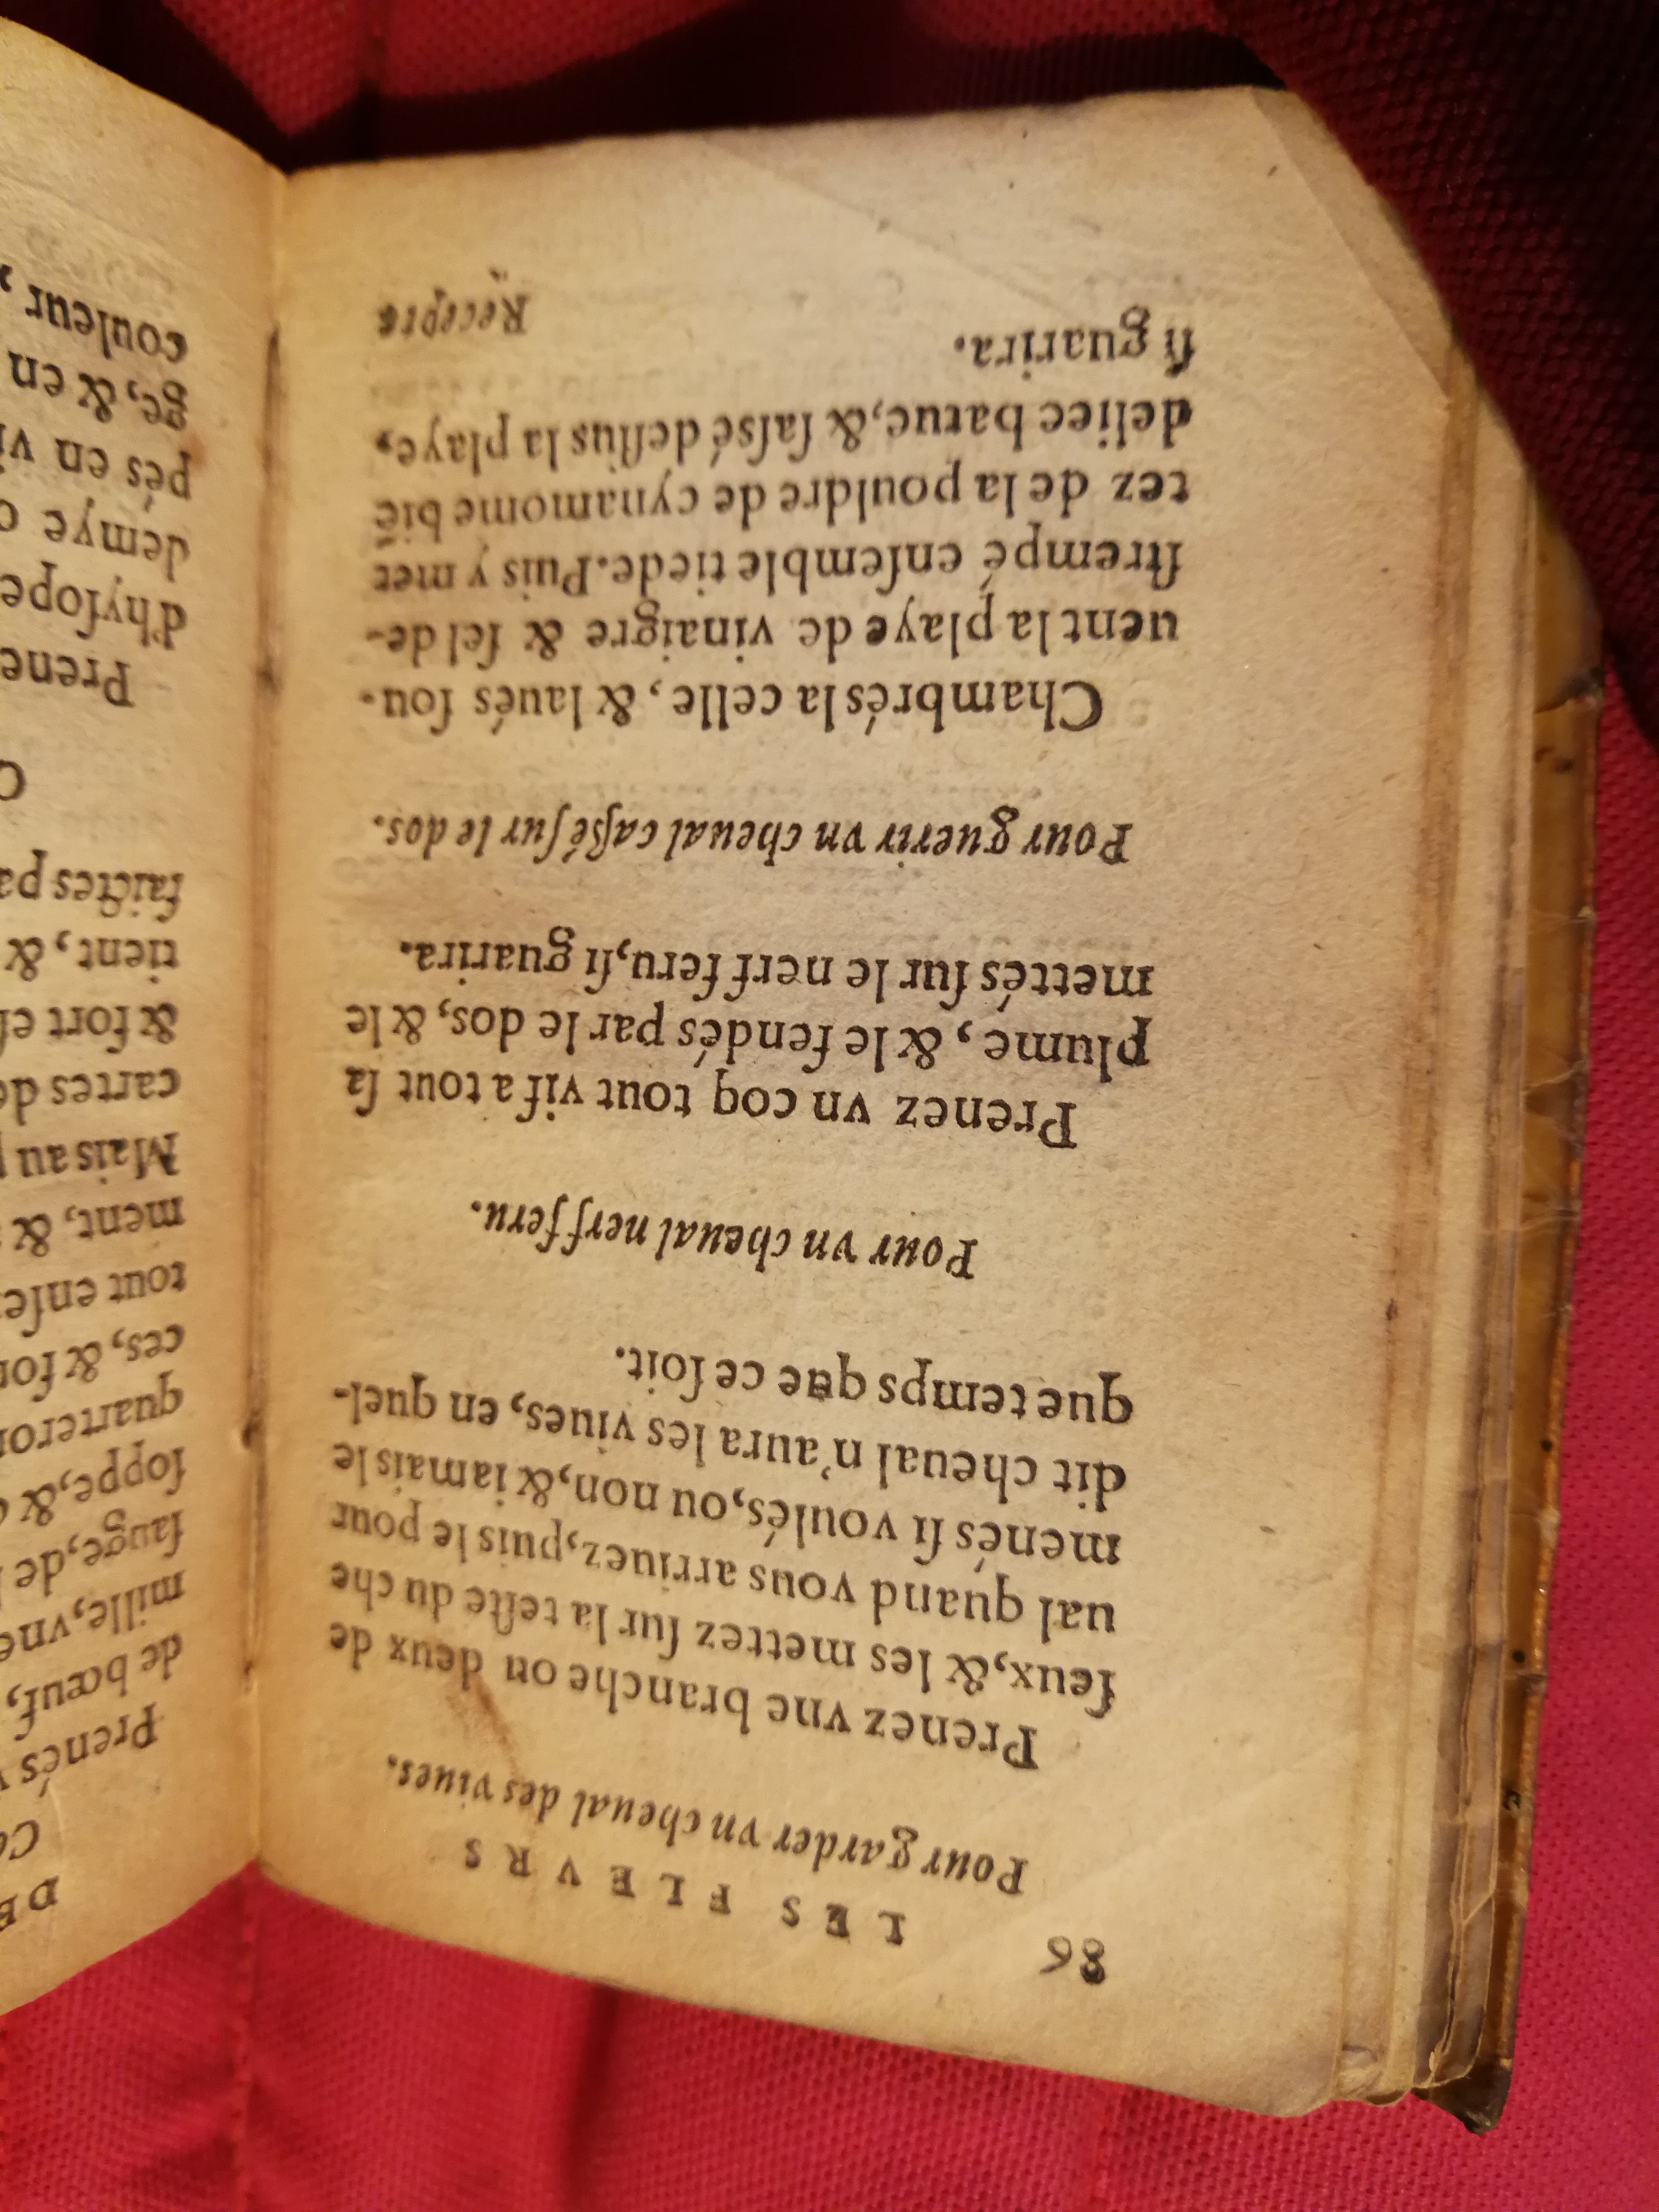 86 LES FLEVRS
Pour garder vn cheual des viues.
Prenez vne branche ou deux de
ſeux, & les mettez ſur la teſte du che
ual quand vous arriuez, puis le pour
menés ſi voulés, ou non, & iamais le
dit cheual n'aura les viues, en quel-
que temps que ce ſoit.
Pour vn cheual nerf feru.
Prenez vn coq tout vif a tout ſa
plume, & le fendés par le dos, & le
mettés ſur le nerf feru, ſi guarira.
Pour guerir vn cheual caßé ſur le dos.
Chambrés la celle, & laués ſou-
uent la playe de vinaigre & ſel de-
ſtrempé enſemble tiede. Puis y met
tez de la pouldre de cynamome biẽ
deliee batue, & ſaſsé deſſus la playe,
ſi guarira.
Recepte
DE
Prenés
de bœuf,
mille, vne
ſauge, de
ſoppe, &
quarteron
ces, & fon
tout enſe
ment, &
Mais au p
cartes de
& fort eſ
tient, &
faictes pa
Prene
d'hyſope
demye
pés en vi
ge, & en
couleur,